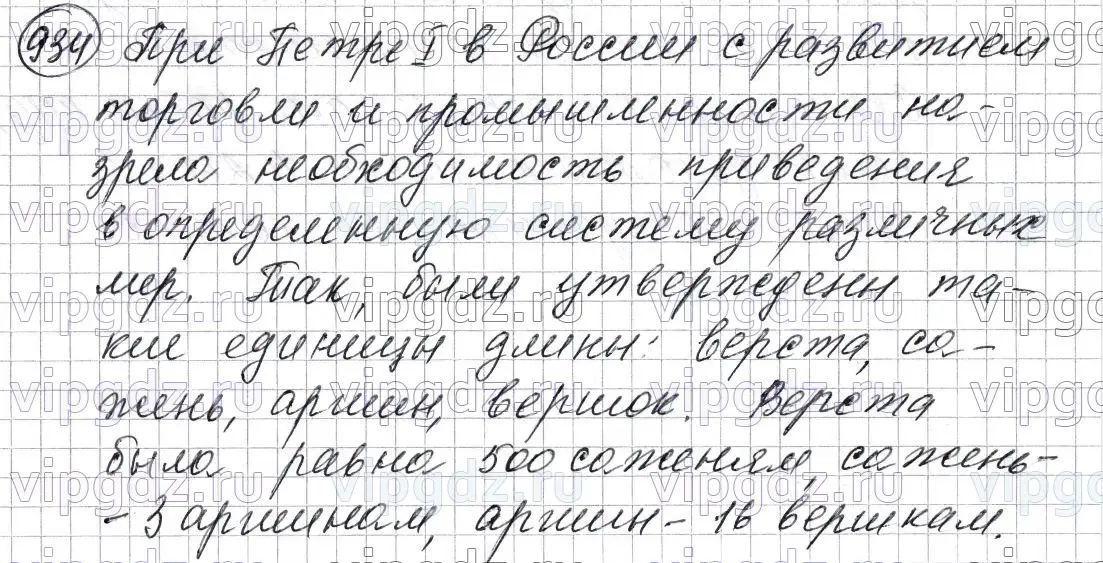 934 При Петре I в России с развитием
торговли и промышленности на-
зрела необходимость приведения
в определенную систему различных
мер. Так, были утверждены та-
кие единицы длины: верста, са-
жень, аршин, вершок. Верста
была равна 500 саженям, сажень-
- 3 аршинам, аршин - 16 вершкам.
vipgdz.ru